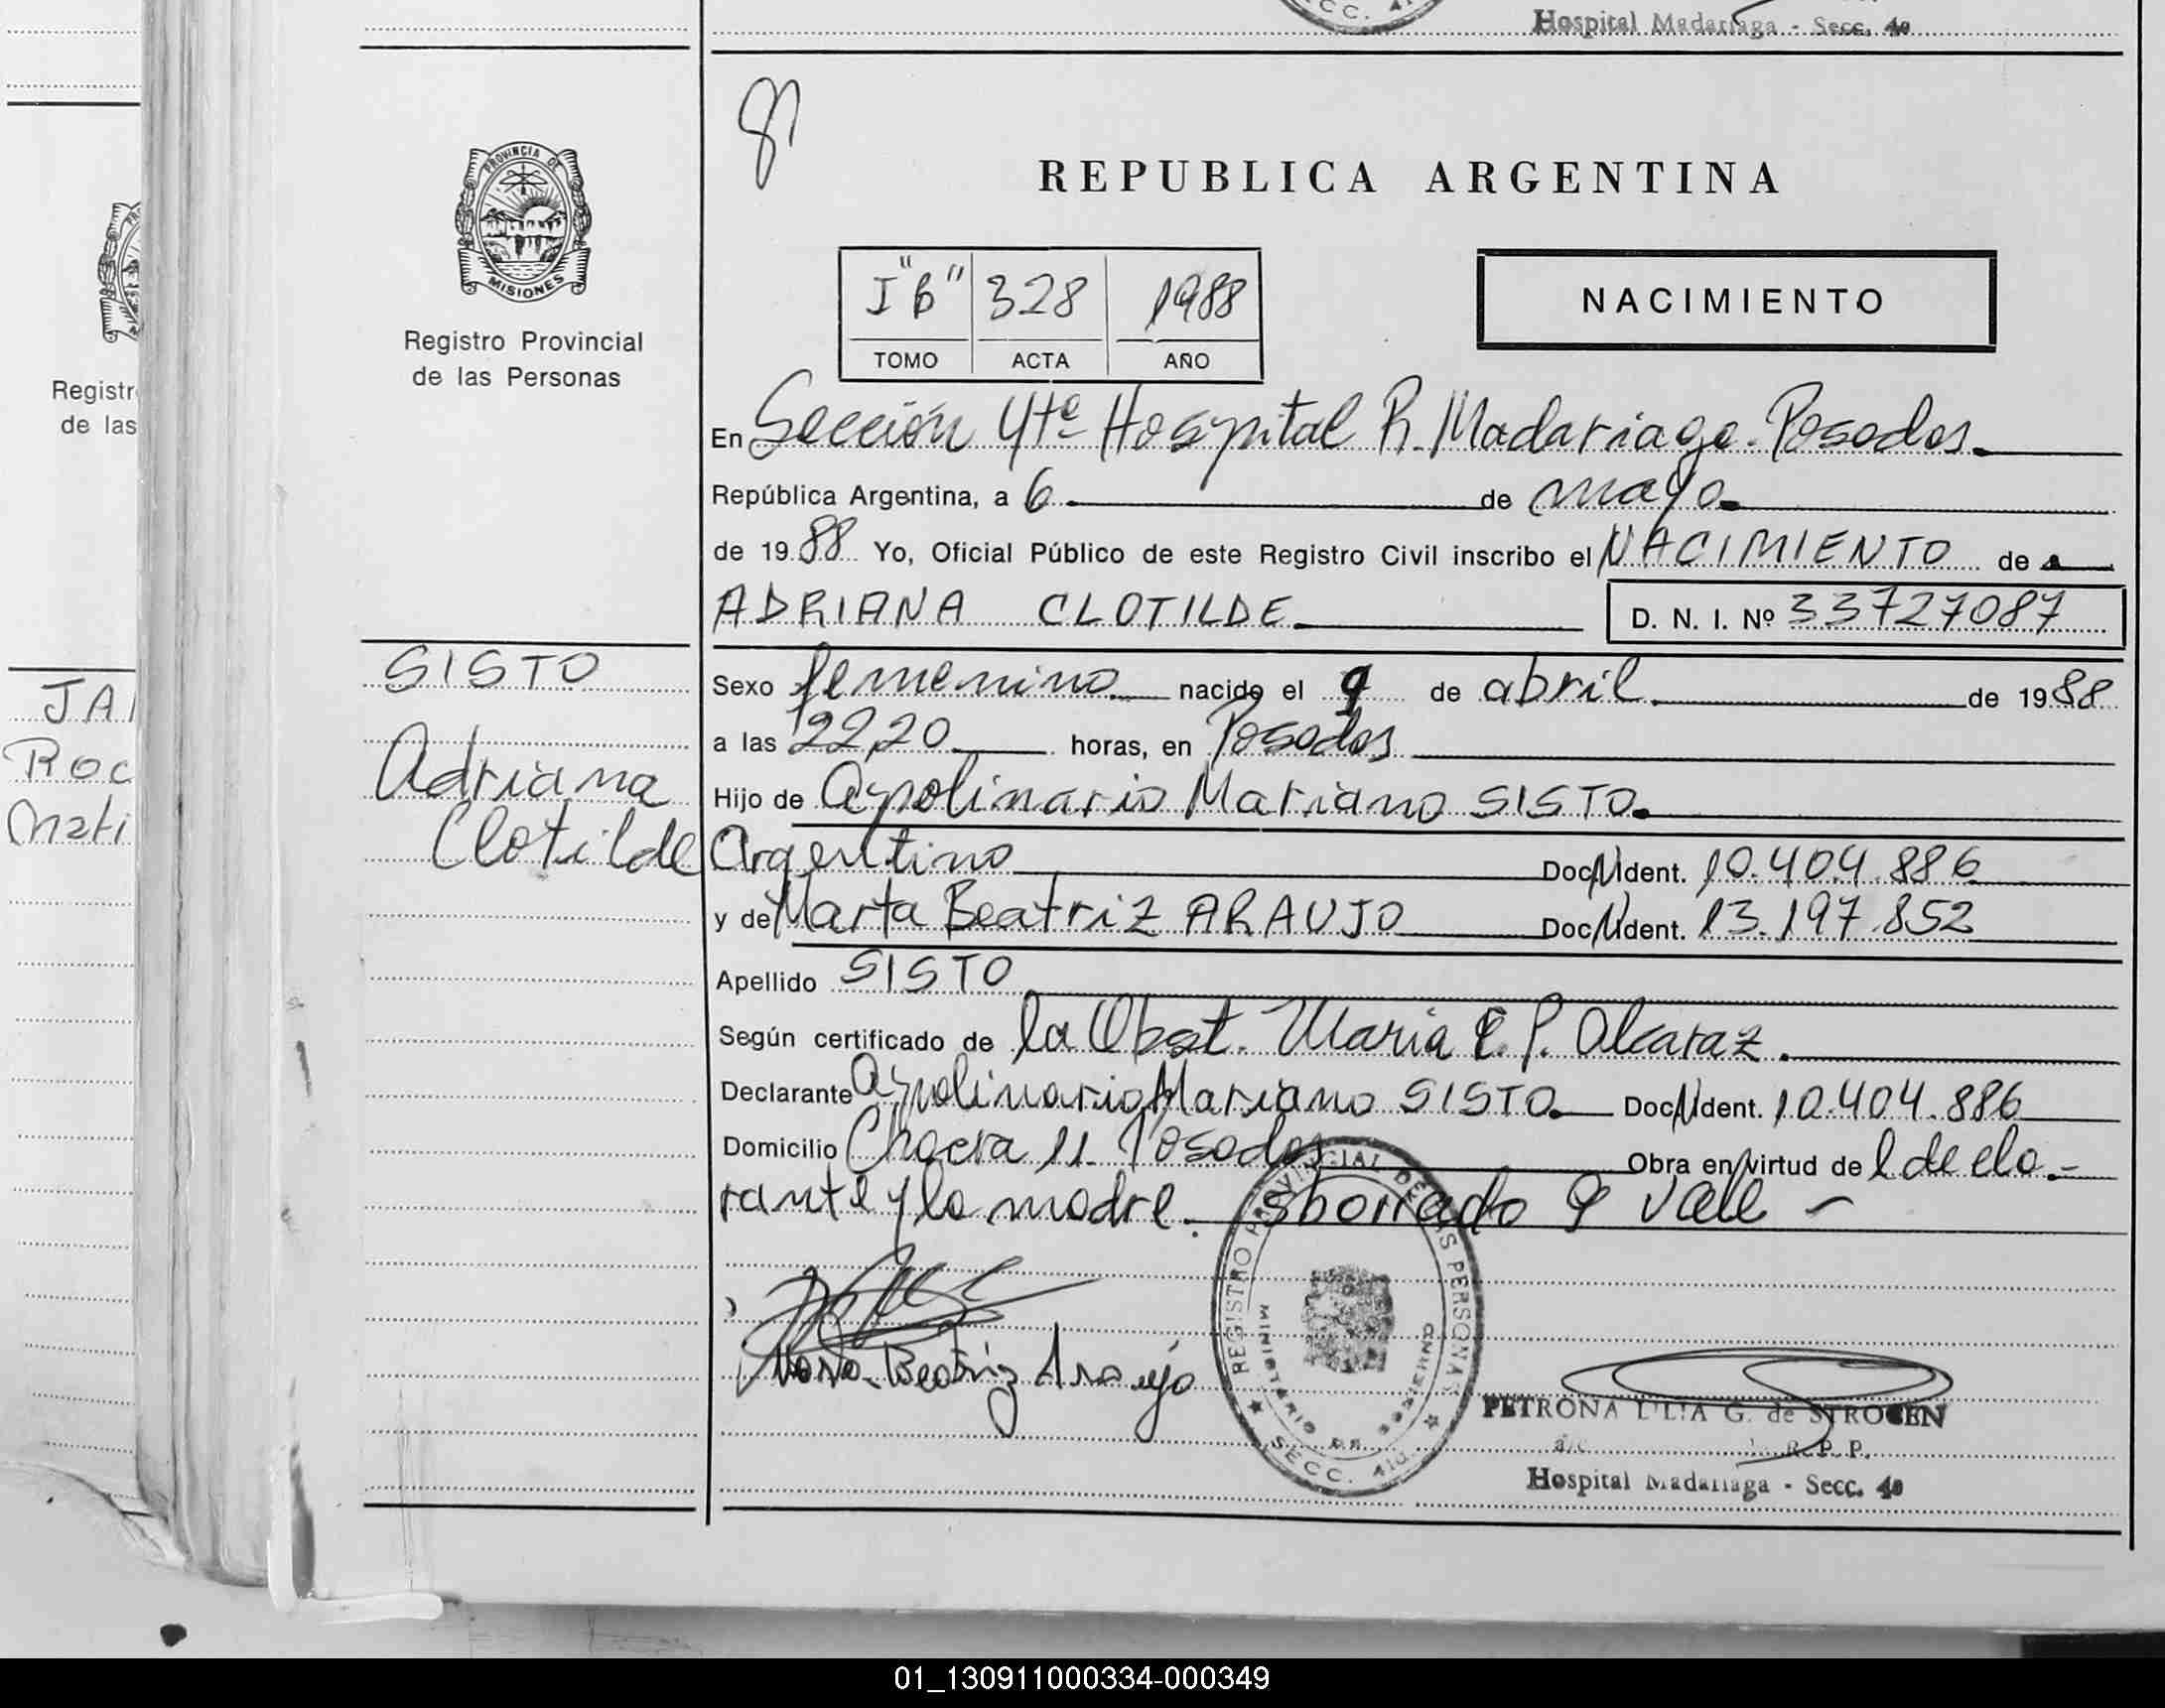 Hospital Madariaga - Secc. 4a
REPUBLICA ARGENTINA
PROVINCIA DE
MISIONES
Registro Provincial
de las Personas
I "B" 328 1988
TOMO ACTA AÑO
NACIMIENTO
Registr
de las
En Sección 4ta Hospital R. Madariaga. Posadas.
República Argentina, a 6 de mayo
de 1988 Yo, Oficial Público de este Registro Civil inscribo el NACIMIENTO de
ADRIANA CLOTILDE D. N. I. Nº 33727087
SISTO
Adriana
Clotilde
JA
Roc
Mati
Sexo femenino nacido el 9 de abril de 1988
a las 22,20 horas, en Posadas
Hijo de Apolinario Mariano SISTO.
Argentino Doc. Ident. 10.404.886
y de Marta Beatriz ARAUJO Doc. Ident. 13.197.852
Apellido SISTO
Según certificado de la Obst. Maria E. P. Alcaraz.
Declarante Apolinario Mariano SISTO. Doc. Ident. 10.404.886
Domicilio Chacra 11. Posadas Obra en virtud de l de cla.-
rante y la madre. Sborrado 9 vale -
REGISTRO PROVINCIAL DE LAS PERSONAS
MINISTERIO DE
SECC. 4ta.
Marta Beatriz Araujo
PETRONA LILIA G. de STROCEN
R. P. P.
Hospital Madariaga - Secc. 4a
01_130911000334-000349